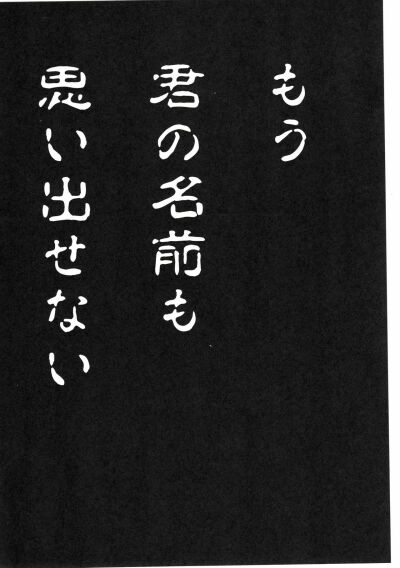 もう
君の名前も
思い出せない